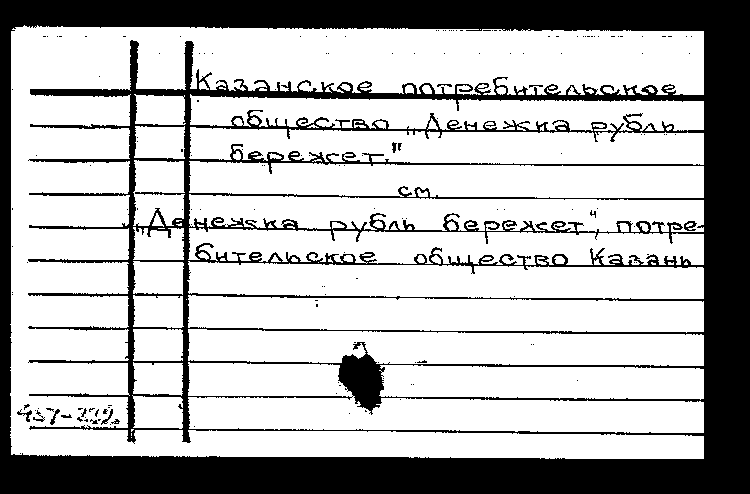 Казанское потребительское
общество „Денежка рубль
бережет."
см.
„Денежка рубль бережет", потре-
бительское общество Казань